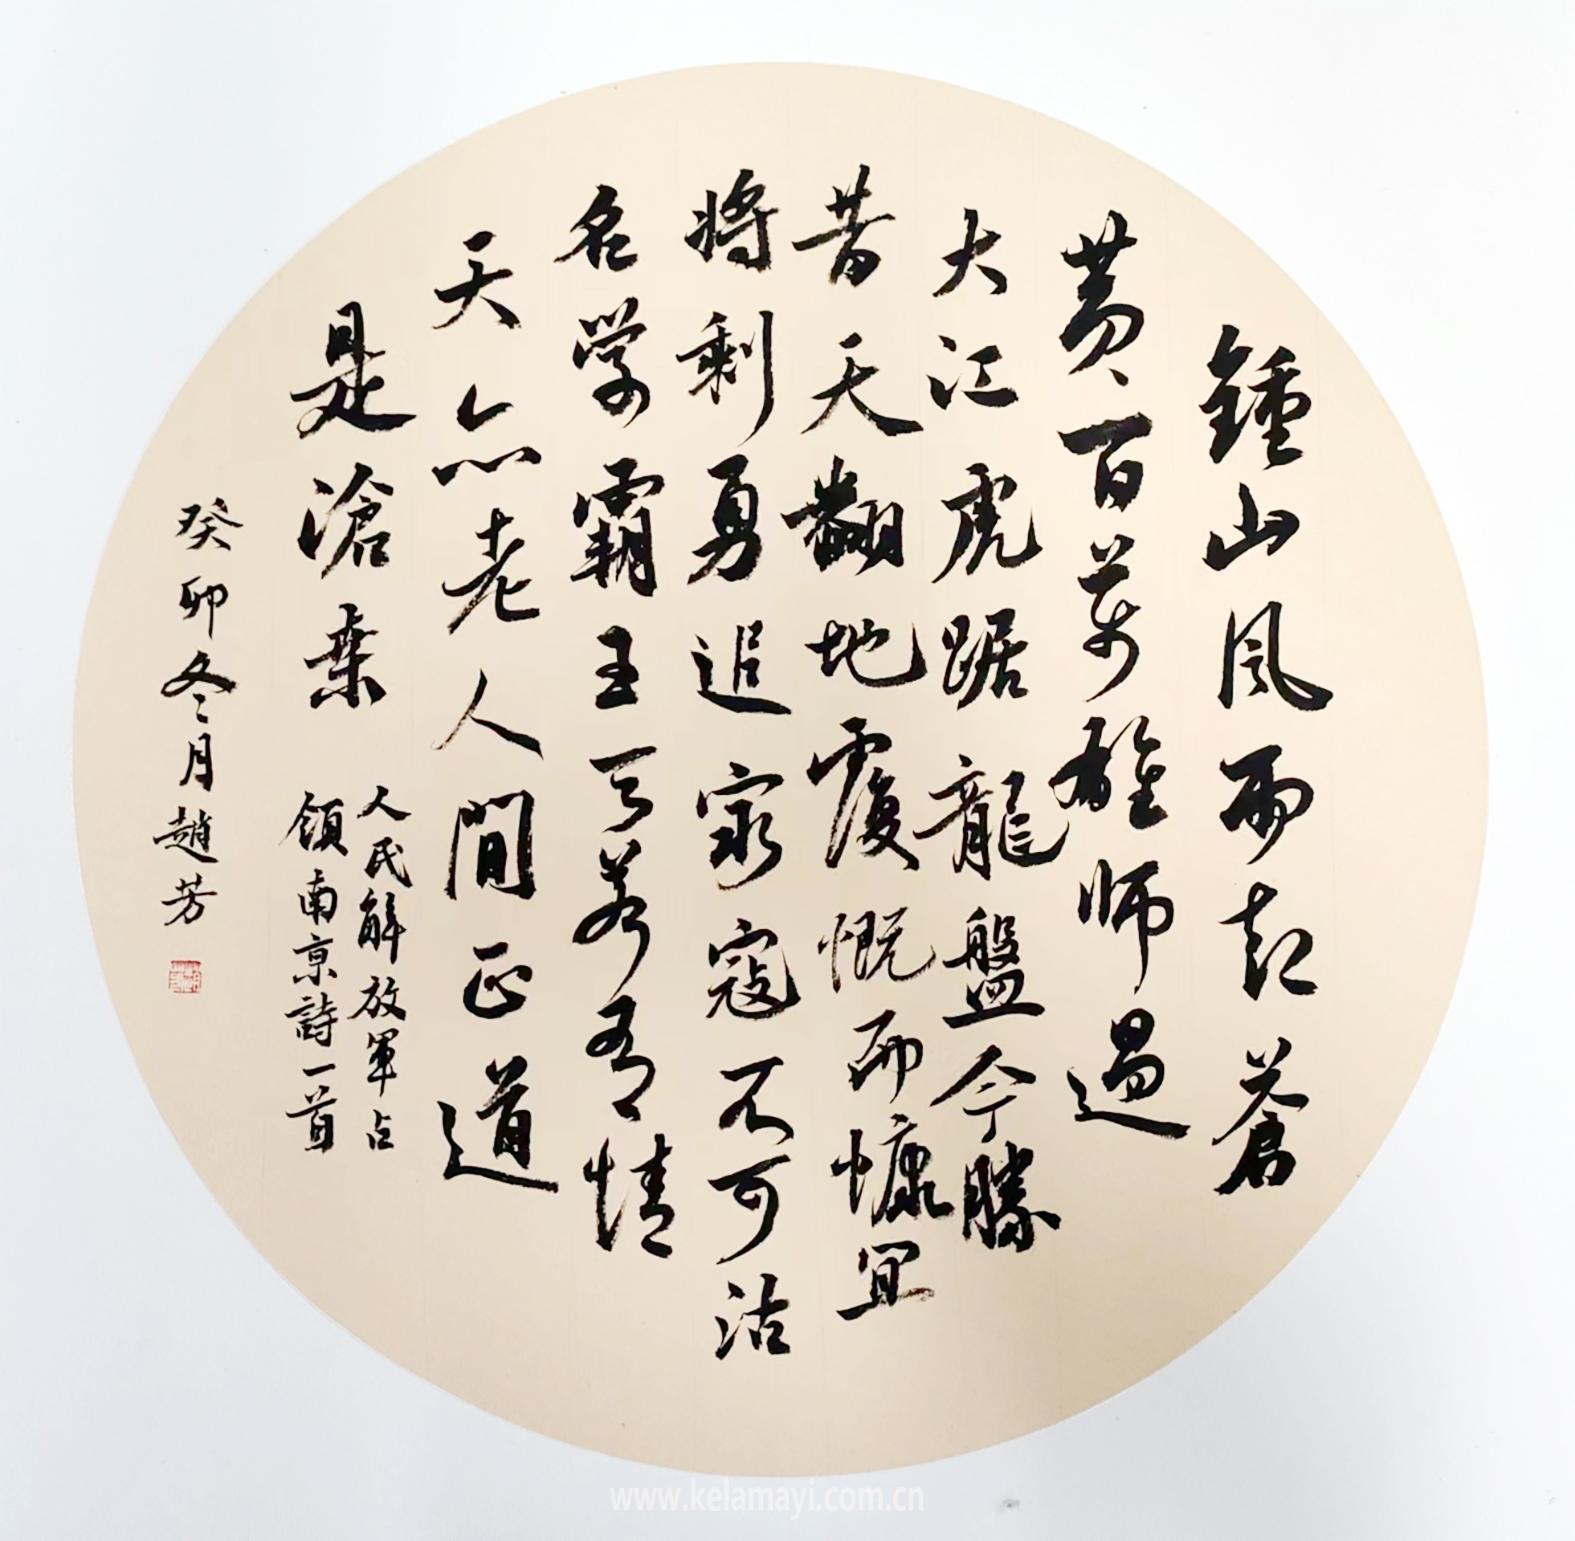 鍾山風雨起蒼
黄百萬雄師過
大江虎踞龍盤今勝
昔天翻地覆慨而慷宜
將剩勇追窮寇不可沽
名学霸王天若有情
天亦老人間正道
是滄桑
人民解放軍占
領南京詩一首
癸卯冬月趙芳
www.kelamayi.com.cn